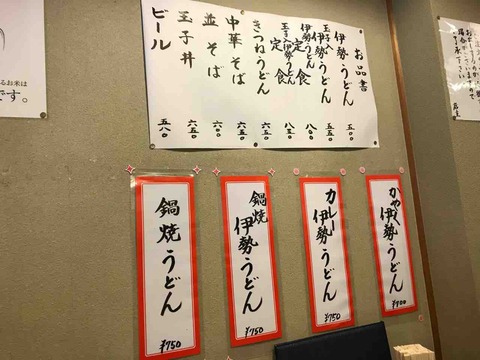 お品書
伊勢うどん 五〇〇
玉子入伊勢うどん 五五〇
伊勢うどん定食 八〇〇
玉子入伊勢うどん定食 八五〇
きつねうどん 六五〇
中華そば 六五〇
並そば 六五〇
玉子丼 六五〇
ビール 五八〇
かやく伊勢うどん
¥700
カレー伊勢うどん
¥750
鍋焼伊勢うどん
¥750
鍋焼うどん
¥750
るお米は
です。